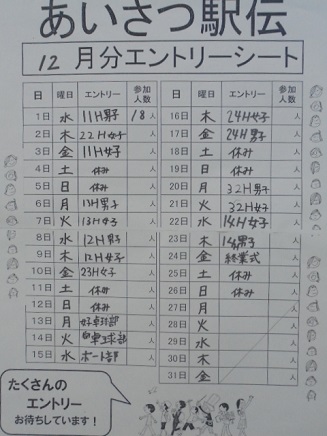 あいさつ駅伝
12月分エントリーシート
日 曜日 エントリー 参加人数
1日 水 11H男子 18人
2日 木 22H女子 人
3日 金 11H女子 人
4日 土 休み 人
5日 日 休み 人
6日 月 13H男子 人
7日 火 13H女子 人
8日 水 12H男子 人
9日 木 12H女子 人
10日 金 23H女子 人
11日 土 休み 人
12日 日 休み 人
13日 月 女卓球部 人
14日 火 男卓球部 人
15日 水 ボート部 人
日 曜日 エントリー 参加人数
16日 木 24H女子 人
17日 金 24H男子 人
18日 土 休み 人
19日 日 休み 人
20日 月 32H男子 人
21日 火 32H女子 人
22日 水 14H女子 人
23日 木 14H男子 人
24日 金 終業式 人
25日 土 休み 人
26日 日 休み 人
27日 月 人
28日 火 人
29日 水 人
30日 木 人
31日 金 人
たくさんの
エントリー
お待ちしています!